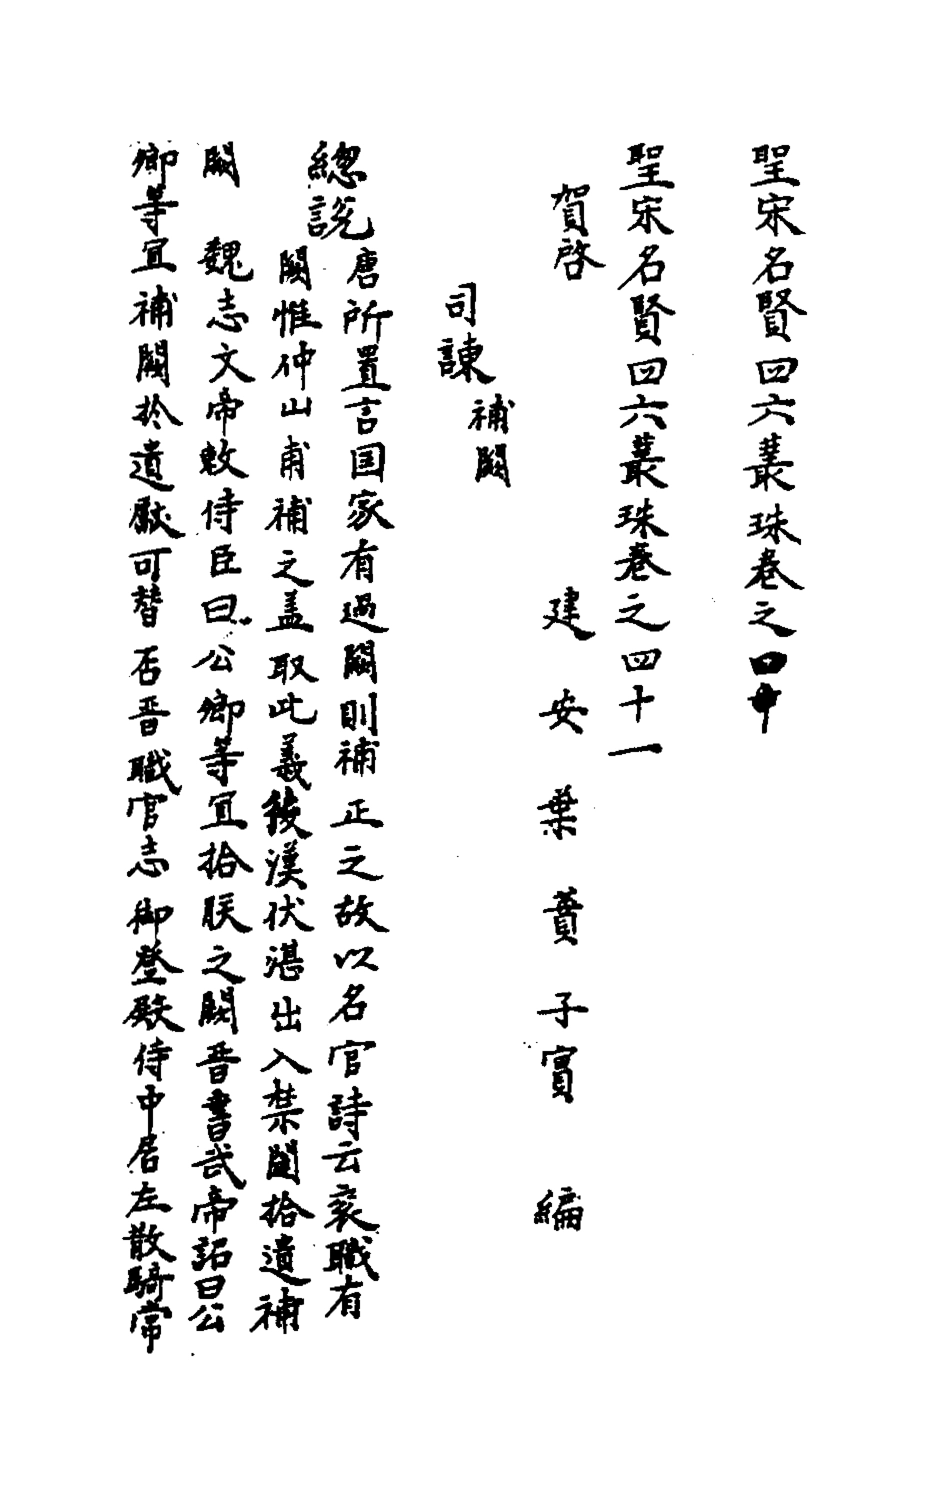 聖宋名賢四六叢珠卷之四十
聖宋名賢四六叢珠卷之四十一
賀啓
建安葉蕡子實編
司諫補闕
總説
唐所置言国家有過闕則補正之故以名官詩云衮職有
闕惟仲山甫補之盖取此義後漢伏湛出入禁闥拾遺補
闕 魏志文帝敕侍臣曰公卿等宜拾朕之闕晋書武帝詔曰公
卿等宜補闕拾遺獻可替否晋職官志御登殿侍中居左散騎常